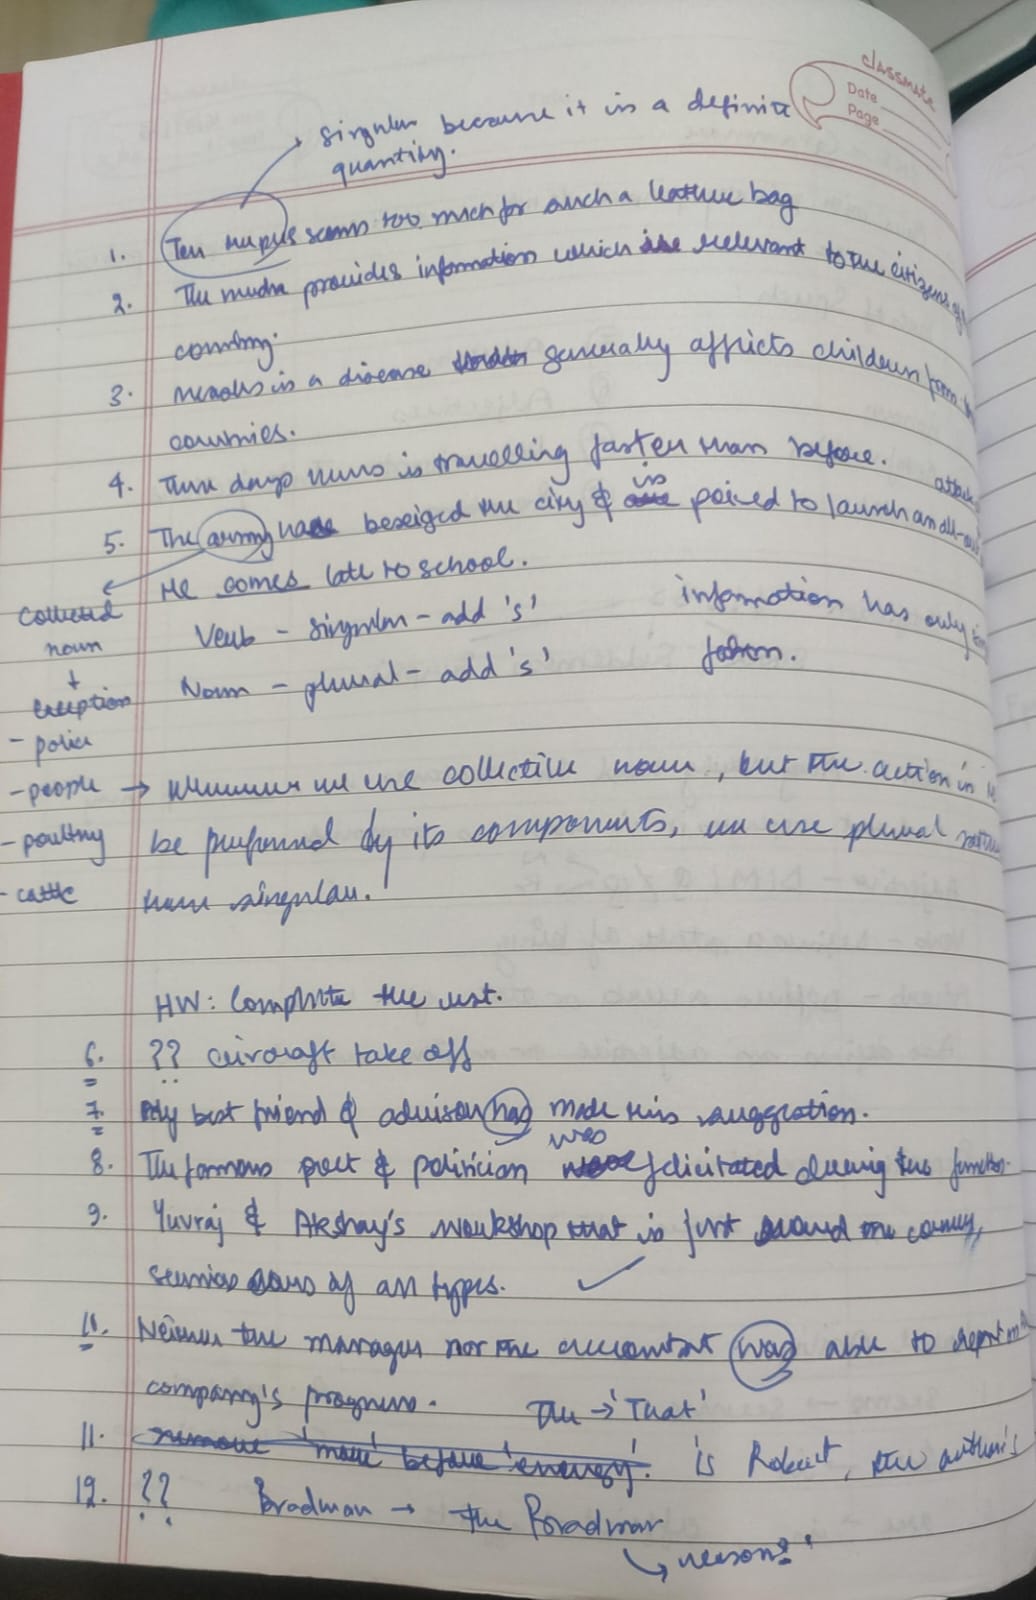 classmate
Date
Page
singular because it is a definite
quantity.
1. Ten rupees seems too much for such a leather bag
2. The media provides information which is relevant to the citizens of
country.
3. Measles is a disease generally afflicts children from
countries.
4. These days news is travelling faster than before.
attack
is
5. The army has beseiged the city & poised to launch an all-out
He comes late to school.
collected
noun
exception
- police
- people
- poultry
- cattle
Verb - singular - add 's'
Noun - plural - add 's'
information has only
form.
→ Whenever we use collective noun, but the action is
be performed by its components, we use plural
than singular.
HW: Complete the rest.
6. ?? aircraft take off
7. My best friend & advisor has made this suggestion.
was
8. The famous poet & politician felicitated during the function.
9. Yuvraj & Akshay's workshop that is just around the corner,
services cars of all types.
11. Neither the manager nor the accountant was able to
company's progress.
The → 'That'
11. remove 'more' before 'energy'. is Robert, the author's
12. ?? Bradman → the Bradman
↳ reason?